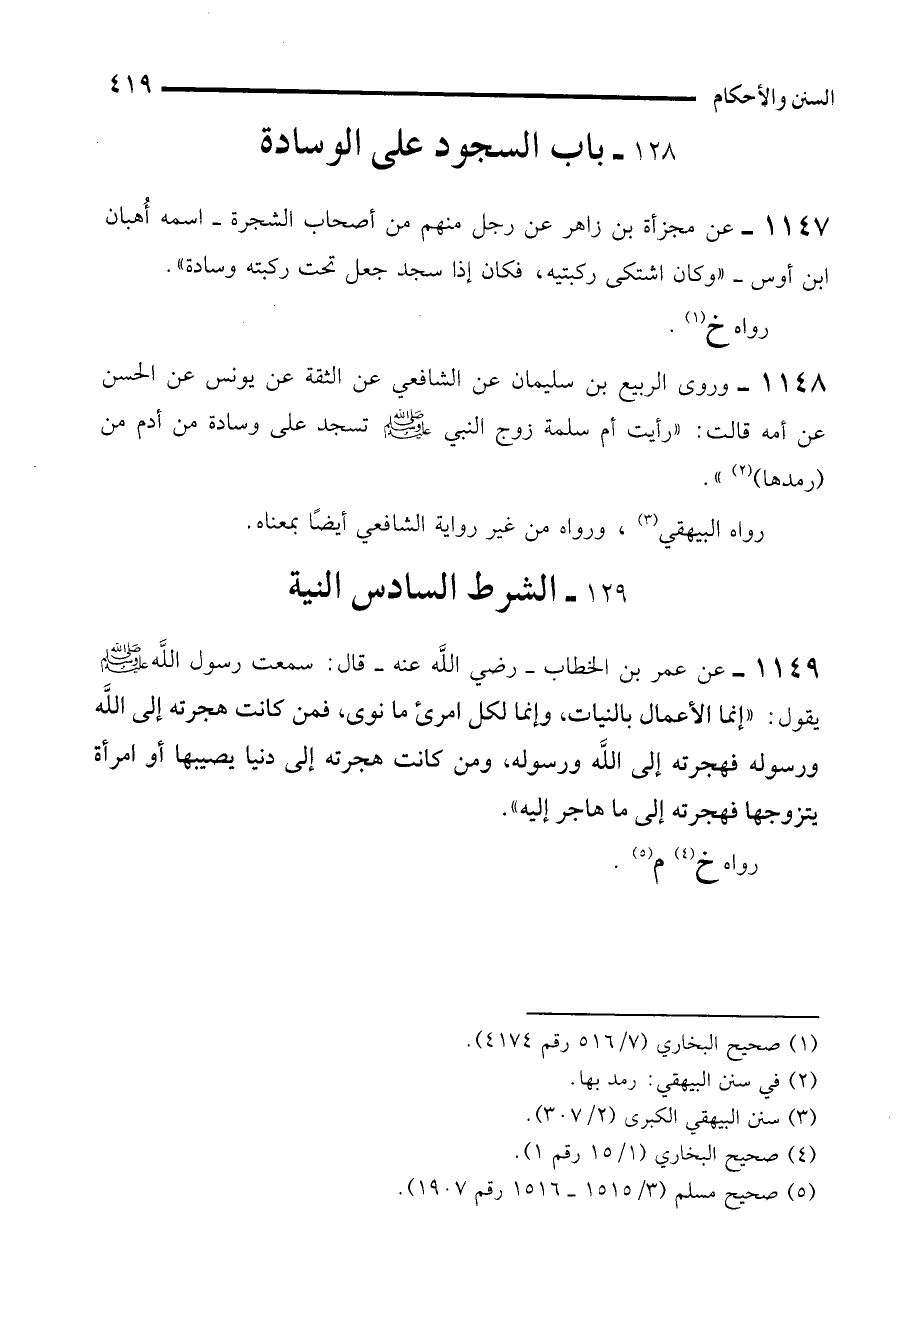 السنن والأحكام ٤١٩
١٢٨ ـ باب السجود على الوسادة
١١٤٧ ـ عن مجزأة بن زاهر عن رجل منهم من أصحاب الشجرة ـ اسمه أُهبان
ابن أوس ـ «وكان اشتكى ركبتيه، فكان إذا سجد جعل تحت ركبته وسادة».
رواه خ(١) .
١١٤٨ ـ وروى الربيع بن سليمان عن الشافعي عن الثقة عن يونس عن الحسن
عن أمه قالت: «رأيت أم سلمة زوج النبي ﷺ تسجد على وسادة من أدم من
(رمدها)(٢) ».
رواه البيهقي(٣) ، ورواه من غير رواية الشافعي أيضًا بمعناه.
١٢٩ ـ الشرط السادس النية
١١٤٩ ـ عن عمر بن الخطاب ـ رضي اللَّه عنه ـ قال: سمعت رسول اللَّه ﷺ
يقول: «إنما الأعمال بالنيات، وإنما لكل امرئ ما نوى، فمن كانت هجرته إلى اللَّه
ورسوله فهجرته إلى اللَّه ورسوله، ومن كانت هجرته إلى دنيا يصيبها أو امرأة
يتزوجها فهجرته إلى ما هاجر إليه».
رواه خ(٤) م(٥) .
(١) صحيح البخاري (٥١٦/٧ رقم ٤١٧٤).
(٢) في سنن البيهقي: رمد بها.
(٣) سنن البيهقي الكبرى (٣٠٧/٢).
(٤) صحيح البخاري (١٥/١ رقم ١).
(٥) صحيح مسلم (١٥١٥/٣ ـ ١٥١٦ رقم ١٩٠٧).